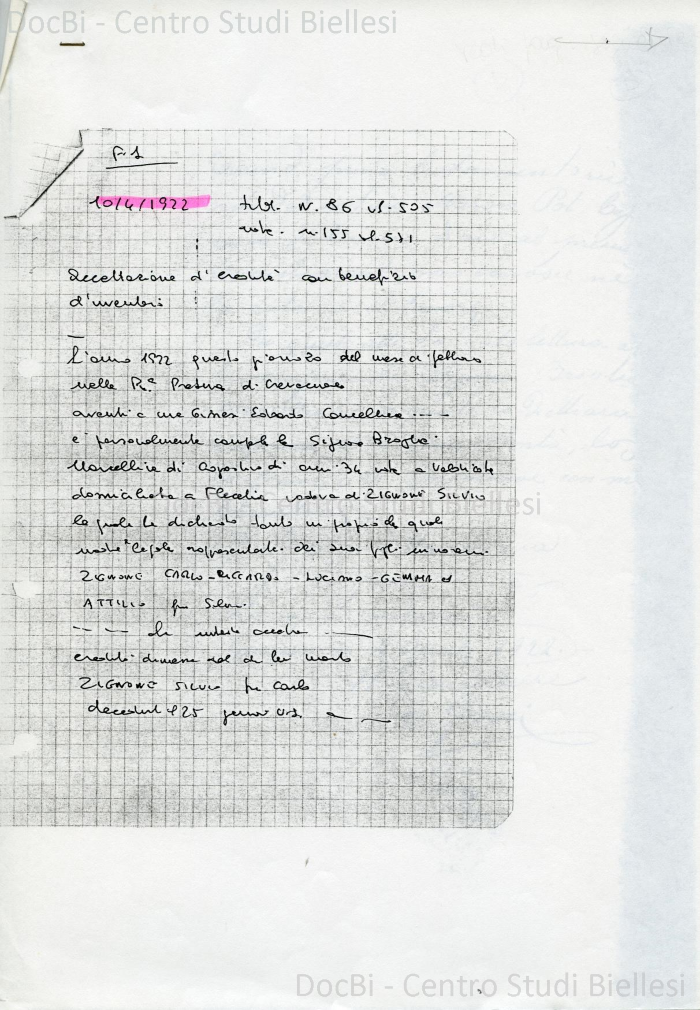 DocBi - Centro Studi Biellesi
F. 1
10/4/1922 N. 86 vol. 505
note. n. 155 vol. 571
Accettazione d'eredità con beneficio
d'inventari
L'anno 1922 questo giorno 20 del mese di febbraio
nella R.a Pretura di Crevacuore
avanti a me Edoardo Cancelliere ----
è personalmente la Signora Braglia
Marcellina di Agostino di anni 34 nata a
domiciliata a Flecchia vedova di ZIGNONE SILVIO
la quale ha dichiarato tanto in propio che quale
legale rappresentante dei suoi figli minorenni
ZIGNONE CARLO - RICCARDO - LUCIANO - GEMMA ed
ATTILIO fu Silvio
---- di
eredità dismessa dal di lei marito
ZIGNONE SILVIO fu Carlo
deceduto il 25 gennaio u.s.
DocBi - Centro Studi Biellesi
DocBi - Centro Studi Biellesi